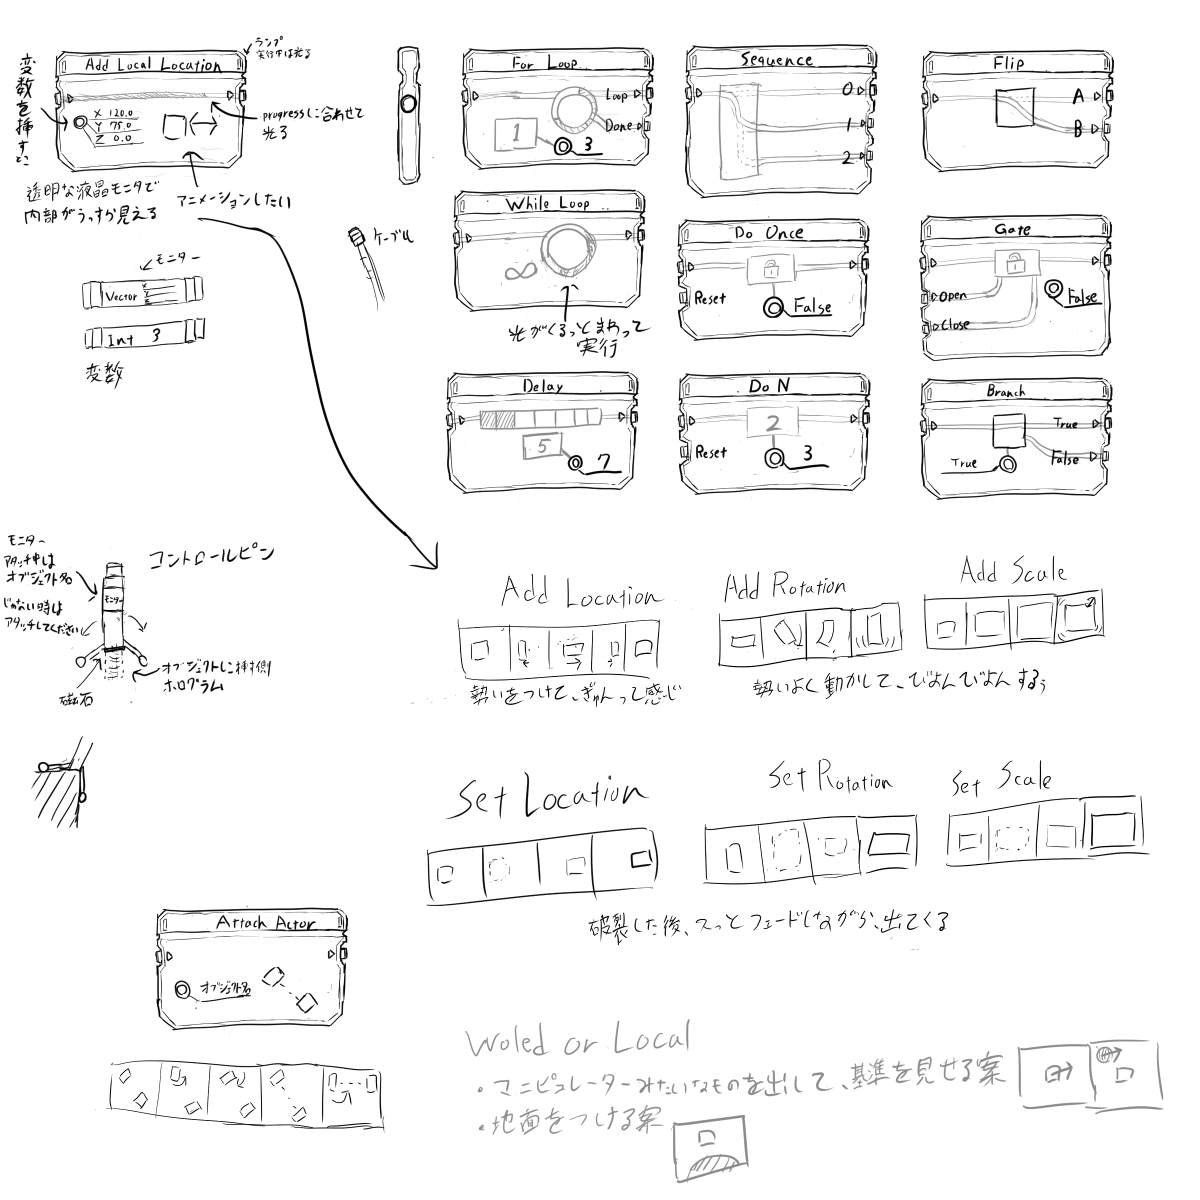 Add Local Location
X 120.0
Y 75.0
Z 0.0
ランプ
実行中は光る
変数を挿すとこ
progressに合わせて
光る
アニメーションしたい
透明な液晶モニタで
内部がうっすら見える
モニター
Vector
X
Y
Z
Int 3
変数
ケーブル
For Loop
Loop
Done
1
3
While Loop
∞
光がくるっとまわって
実行
Delay
5
7
Sequence
0
1
2
Do Once
Reset
False
Do N
2
Reset
3
Flip
A
B
Gate
Open
Close
False
Branch
True
False
True
モニター
アタッチ中は
オブジェクト名
じゃない時は
アタッチしてください
モニター
コントロールピン
オブジェクトに挿す側
ホログラム
磁石
Add Location
勢いをつけて、ぎゅんって感じ
Add Rotation
Add Scale
勢いよく動かして、びよんびよんするぅ
Set Location
Set Rotation
Set Scale
破裂した後、スっとフェードしながら、出てくる
Attach Actor
オブジェクト名
Woled or Local
・マニピュレーターみたいなものを出して、基準を見せる案
・地面をつける案